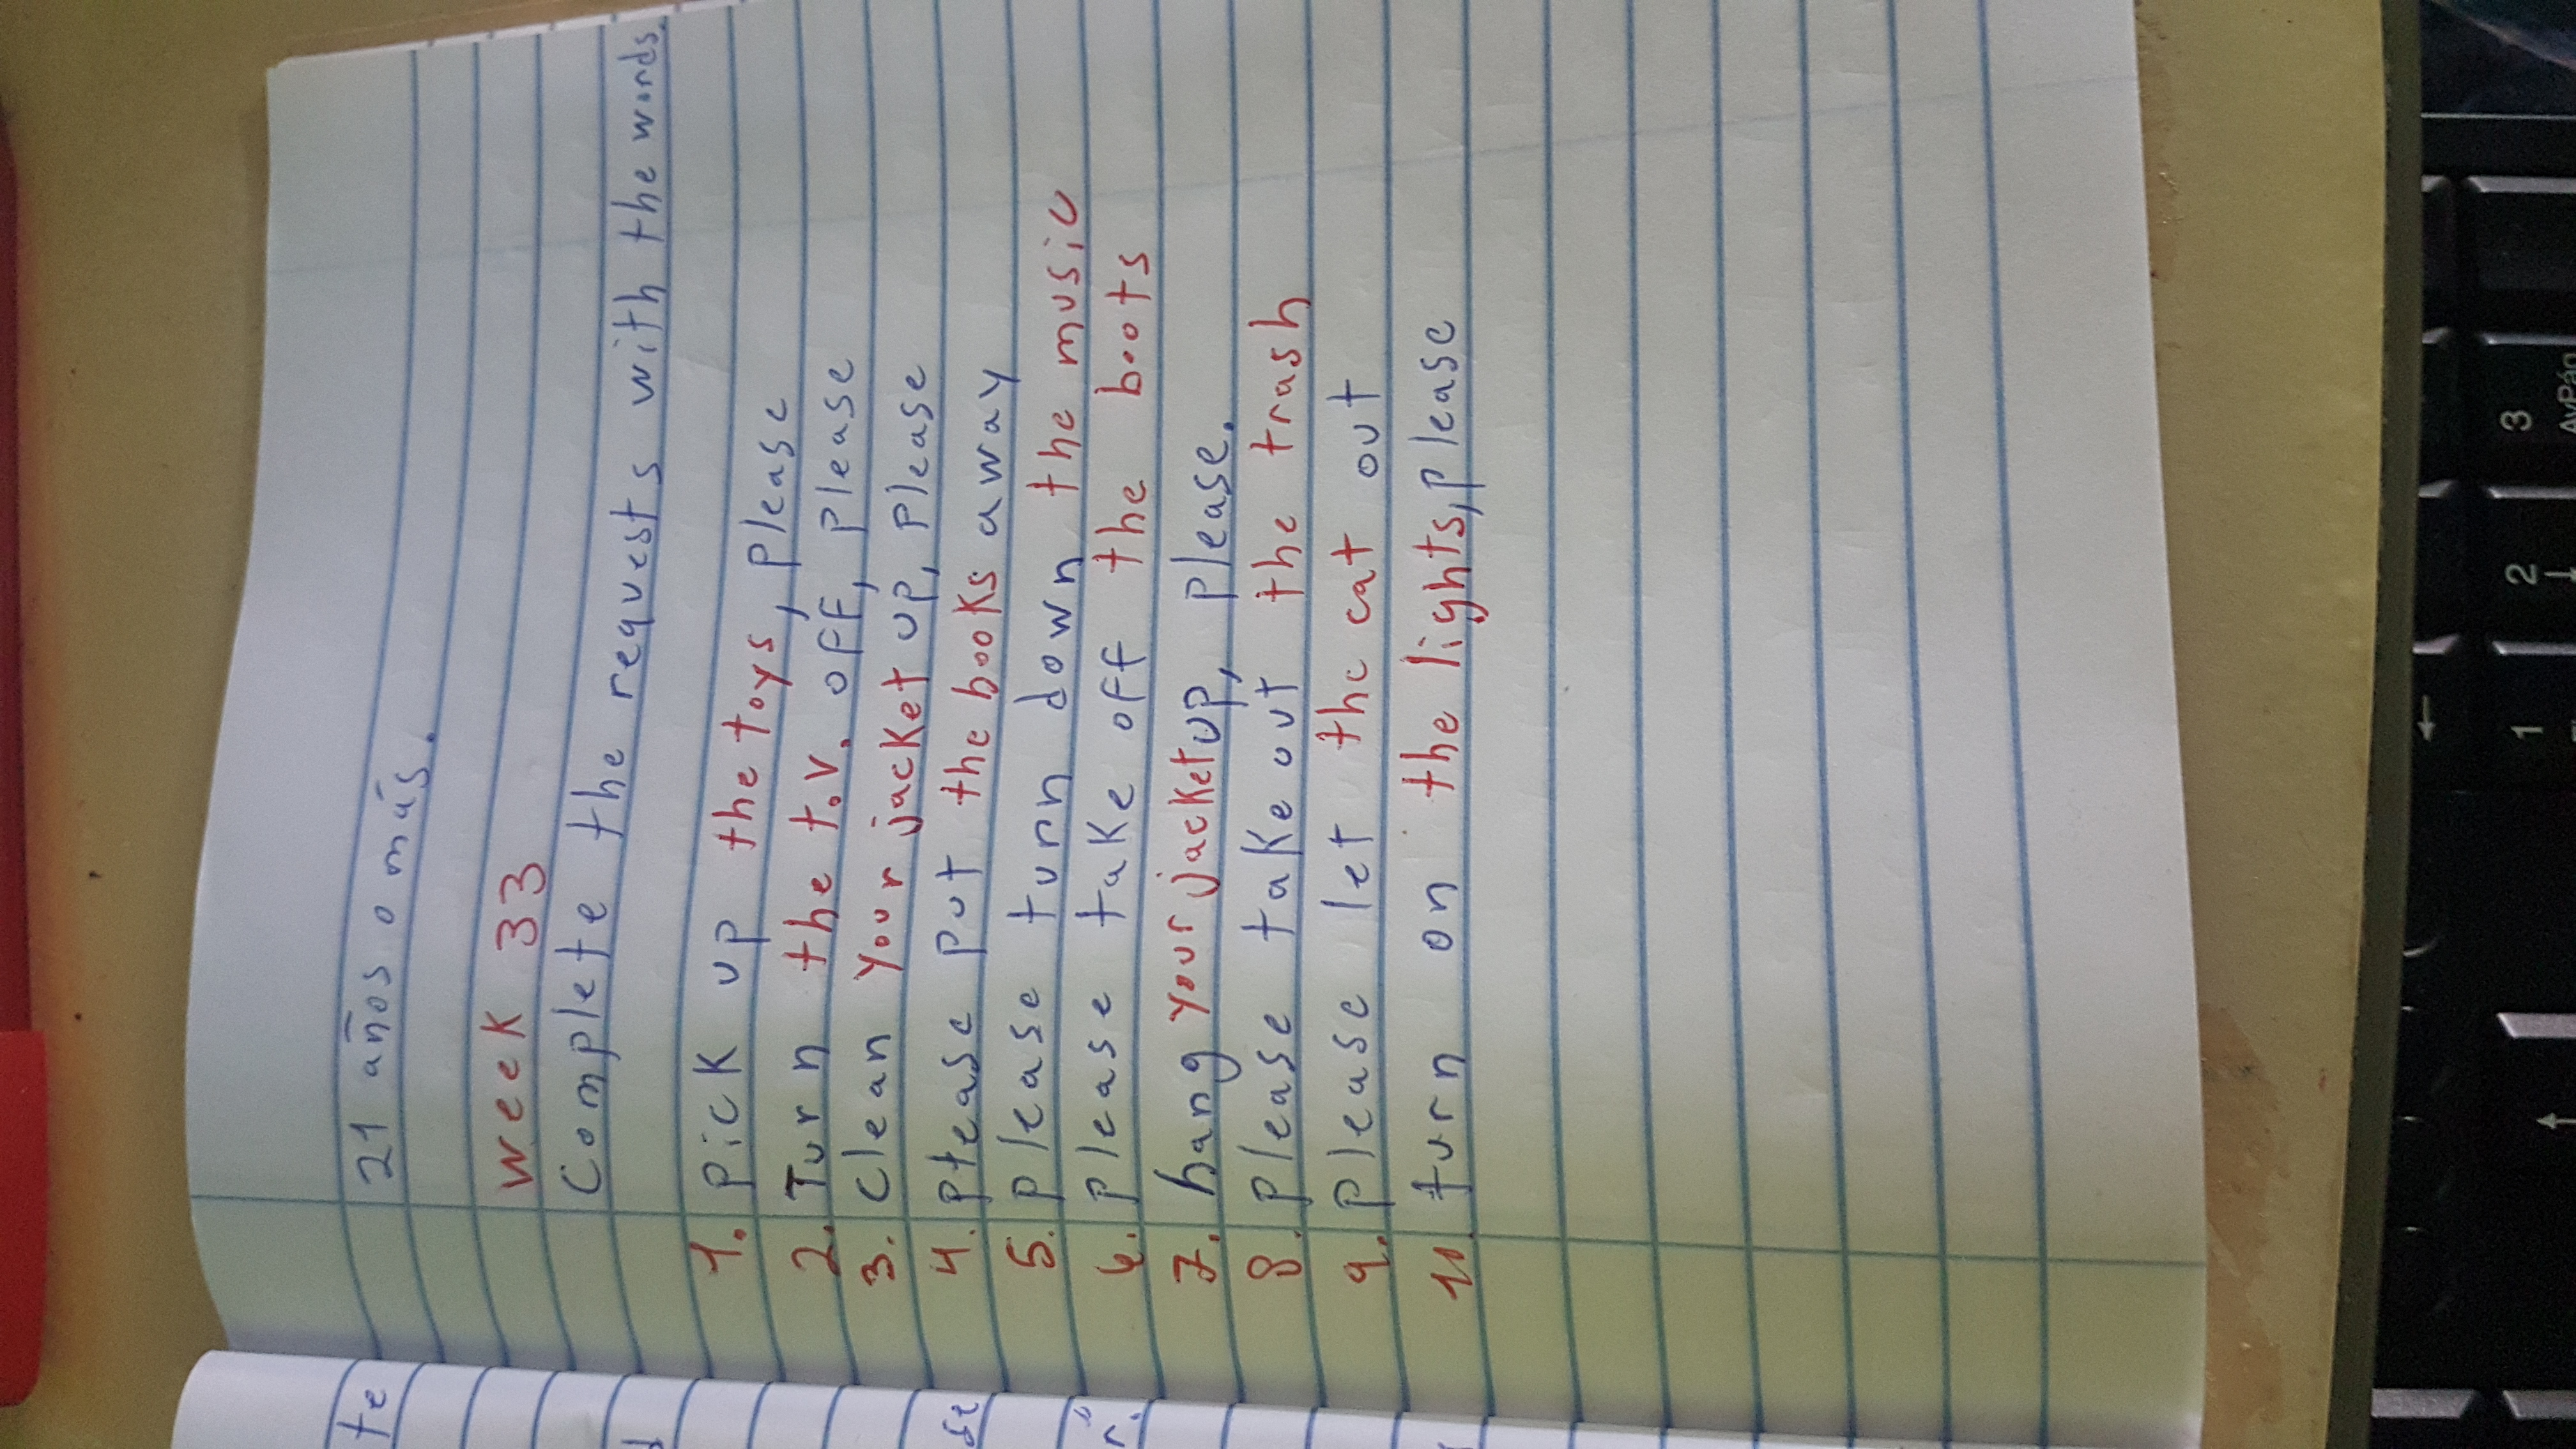 21 años o más.
week 33
Complete the requests with the words.
1. Pick up the toys, please
2. Turn the t.v. off, please
3. Clean your jacket up, please
4. Please put the books away
5. please turn down the music
6. please take off the boots
7. hang your jacket up, please.
8. please take out the trash
9. please let the cat out
10 turn on the lights, please
te
se
r.
1
2
3
AvPág
←
↓
↑